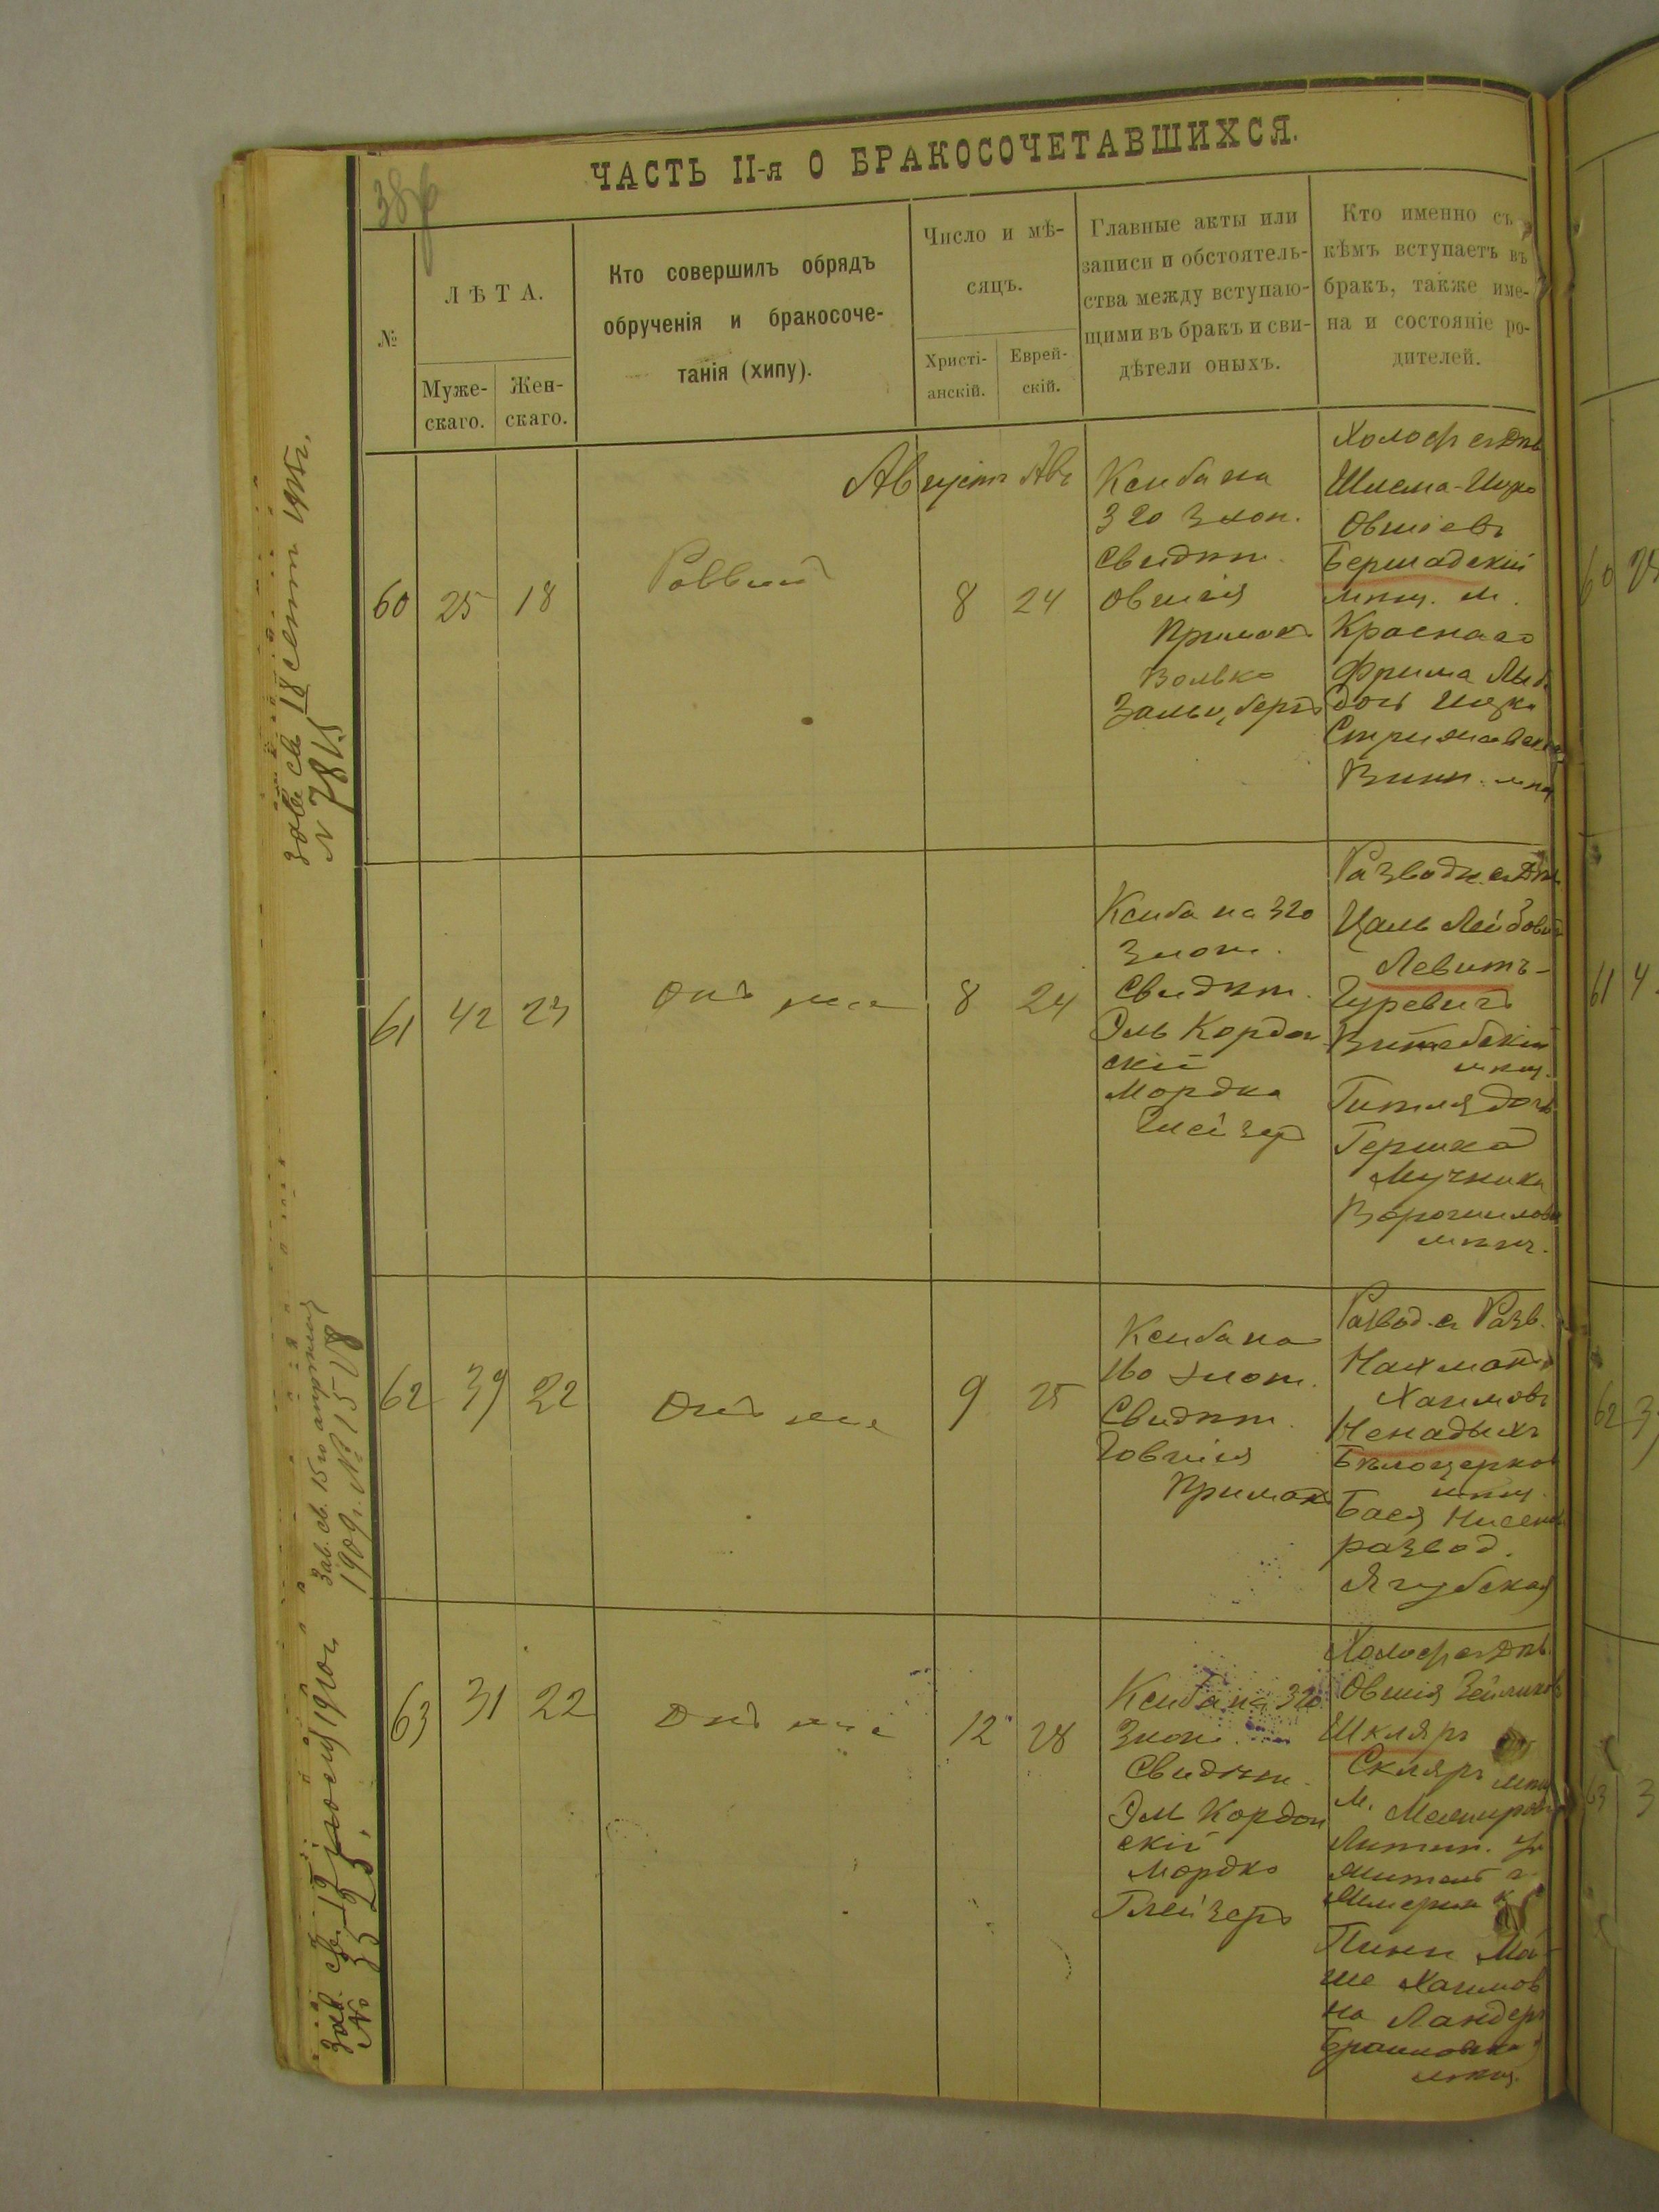 ЧАСТЬ II-я О БРАКОСОЧЕТАВШИХСЯ.
№
ЛѢТА.
Муже-
скаго.
Жен-
скаго.
Кто совершилъ обрядъ
обрученія и бракосоче-
танія (хипу).
Число и мѣ-
сяцъ.
Христі-
анскій.
Еврей-
скій.
Главные акты или
записи и обстоятель-
ства между вступаю-
щими въ бракъ и сви-
дѣтели оныхъ.
Кто именно съ
кѣмъ вступаетъ въ
бракъ, также име-
на и состояніе ро-
дителей.
Августъ Авъ
60 25 18
Раввинъ
8 24
Ксиба на
320 злот.
Свидѣт.
Овшія
Примакъ
Волько
Холост съ Дѣв
Овшіевъ
Бершадскій
мѣщ. м.
Краснаго
Фрима
дочь Ицка
Стрижавская
Винн. мѣщ
61 42 23
Онъ же
8 24
Ксиба на 320
злот.
Свидѣт.
Эль Кордон
скій
Мордко
Глейзеръ
Развод. съ Дѣв
Цаль Лейбовъ
Левитъ-
Гуревичъ
Витебскій
мѣщ.
Гитля дочь
Гершка
Мучника
Ворошилов
мѣщ.
62 39 22
Онъ же
9 25
Ксиба на
160 злот.
Свидѣт.
Іовшія
Примакъ
Развод. съ Разв.
Нахманъ
Хаимовъ
Ненадыхъ
Бѣлоцерков
мѣщ.
Бася Нисенов
развод.
Ягубская
63 31 22
Онъ же
12 28
Ксиба на 320
злот.
Свидѣт.
Эль Кордон
скій
Мордко
Глейзеръ
Холост съ Дѣв
Овшія Зейликовъ
Шкляръ
Скляръ мѣщ
м. Межировъ
Литин. у.
Хаимов
на Ландеръ
Браиловская
мѣщ.
Зав. св. 18 сент 1915г.
№ 7815
Зав. св. 15го апрѣля
1909г. № 1508
Зав. св. 19 1910г.
№ 3525.